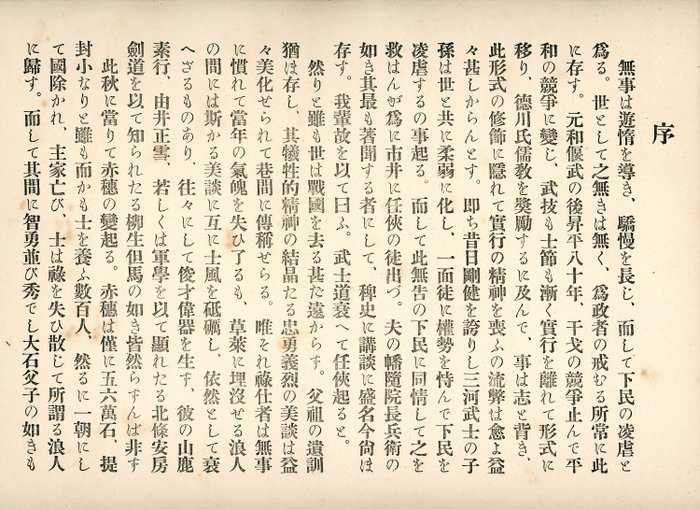 序
無事は遊惰を導き、驕慢を長じ、而して下民の凌虐と
爲る。世として之無きは無く、爲政者の戒むる所常に此
に存す。元和偃武の後昇平八十年、干戈の競爭止んで平
和の競爭に變じ、武技も士節も漸く實行を離れて形式に
移り、德川氏儒教を奬勵するに及んで、事は志と背き、
此形式の修飾に隱れて實行の精神を喪ふの流弊は愈よ益
々甚しからんとす。即ち昔日剛健を誇りし三河武士の子
孫は世と共に柔弱に化し、一面徒に權勢を恃んで下民を
凌虐するの事起る。而して此無告の下民に同情して之を
救はんが爲に市井に任俠の徒出づ。夫の幡隨院長兵衞の
如き其最も著聞する者にして、稗史に講談に盛名今尙ほ
存す。我輩故を以て曰ふ。武士道衰へて任俠起ると。
然りと雖も世は戰國を去る甚だ遠からず。父祖の遺訓
猶ほ存し、其犧牲的精神の結晶たる忠勇義烈の美談は益
々美化せられて巷間に傳稱せらる。唯それ祿仕者は無事
に慣れて當年の氣魄を失ひ了るも、草萊に埋沒せる浪人
の間には斯かる美談に互に士風を砥礪し、依然として衰
へざるものあり、往々にして俊才偉器を生す、彼の山鹿
素行、由井正雪、若しくは軍學を以て顯れたる北條安房
劍道を以て知られたる柳生但馬の如き皆然らずんば非ず
此秋に當りて赤穗の變起る。赤穗は僅に五六萬石、提
封小なりと雖も而かも士を養ふ數百人、然るに一朝にし
て國除かれ、主家亡び、士は祿を失ひ散じて所謂る浪人
に歸す。而して其間に智勇並び秀でし大石父子の如きも